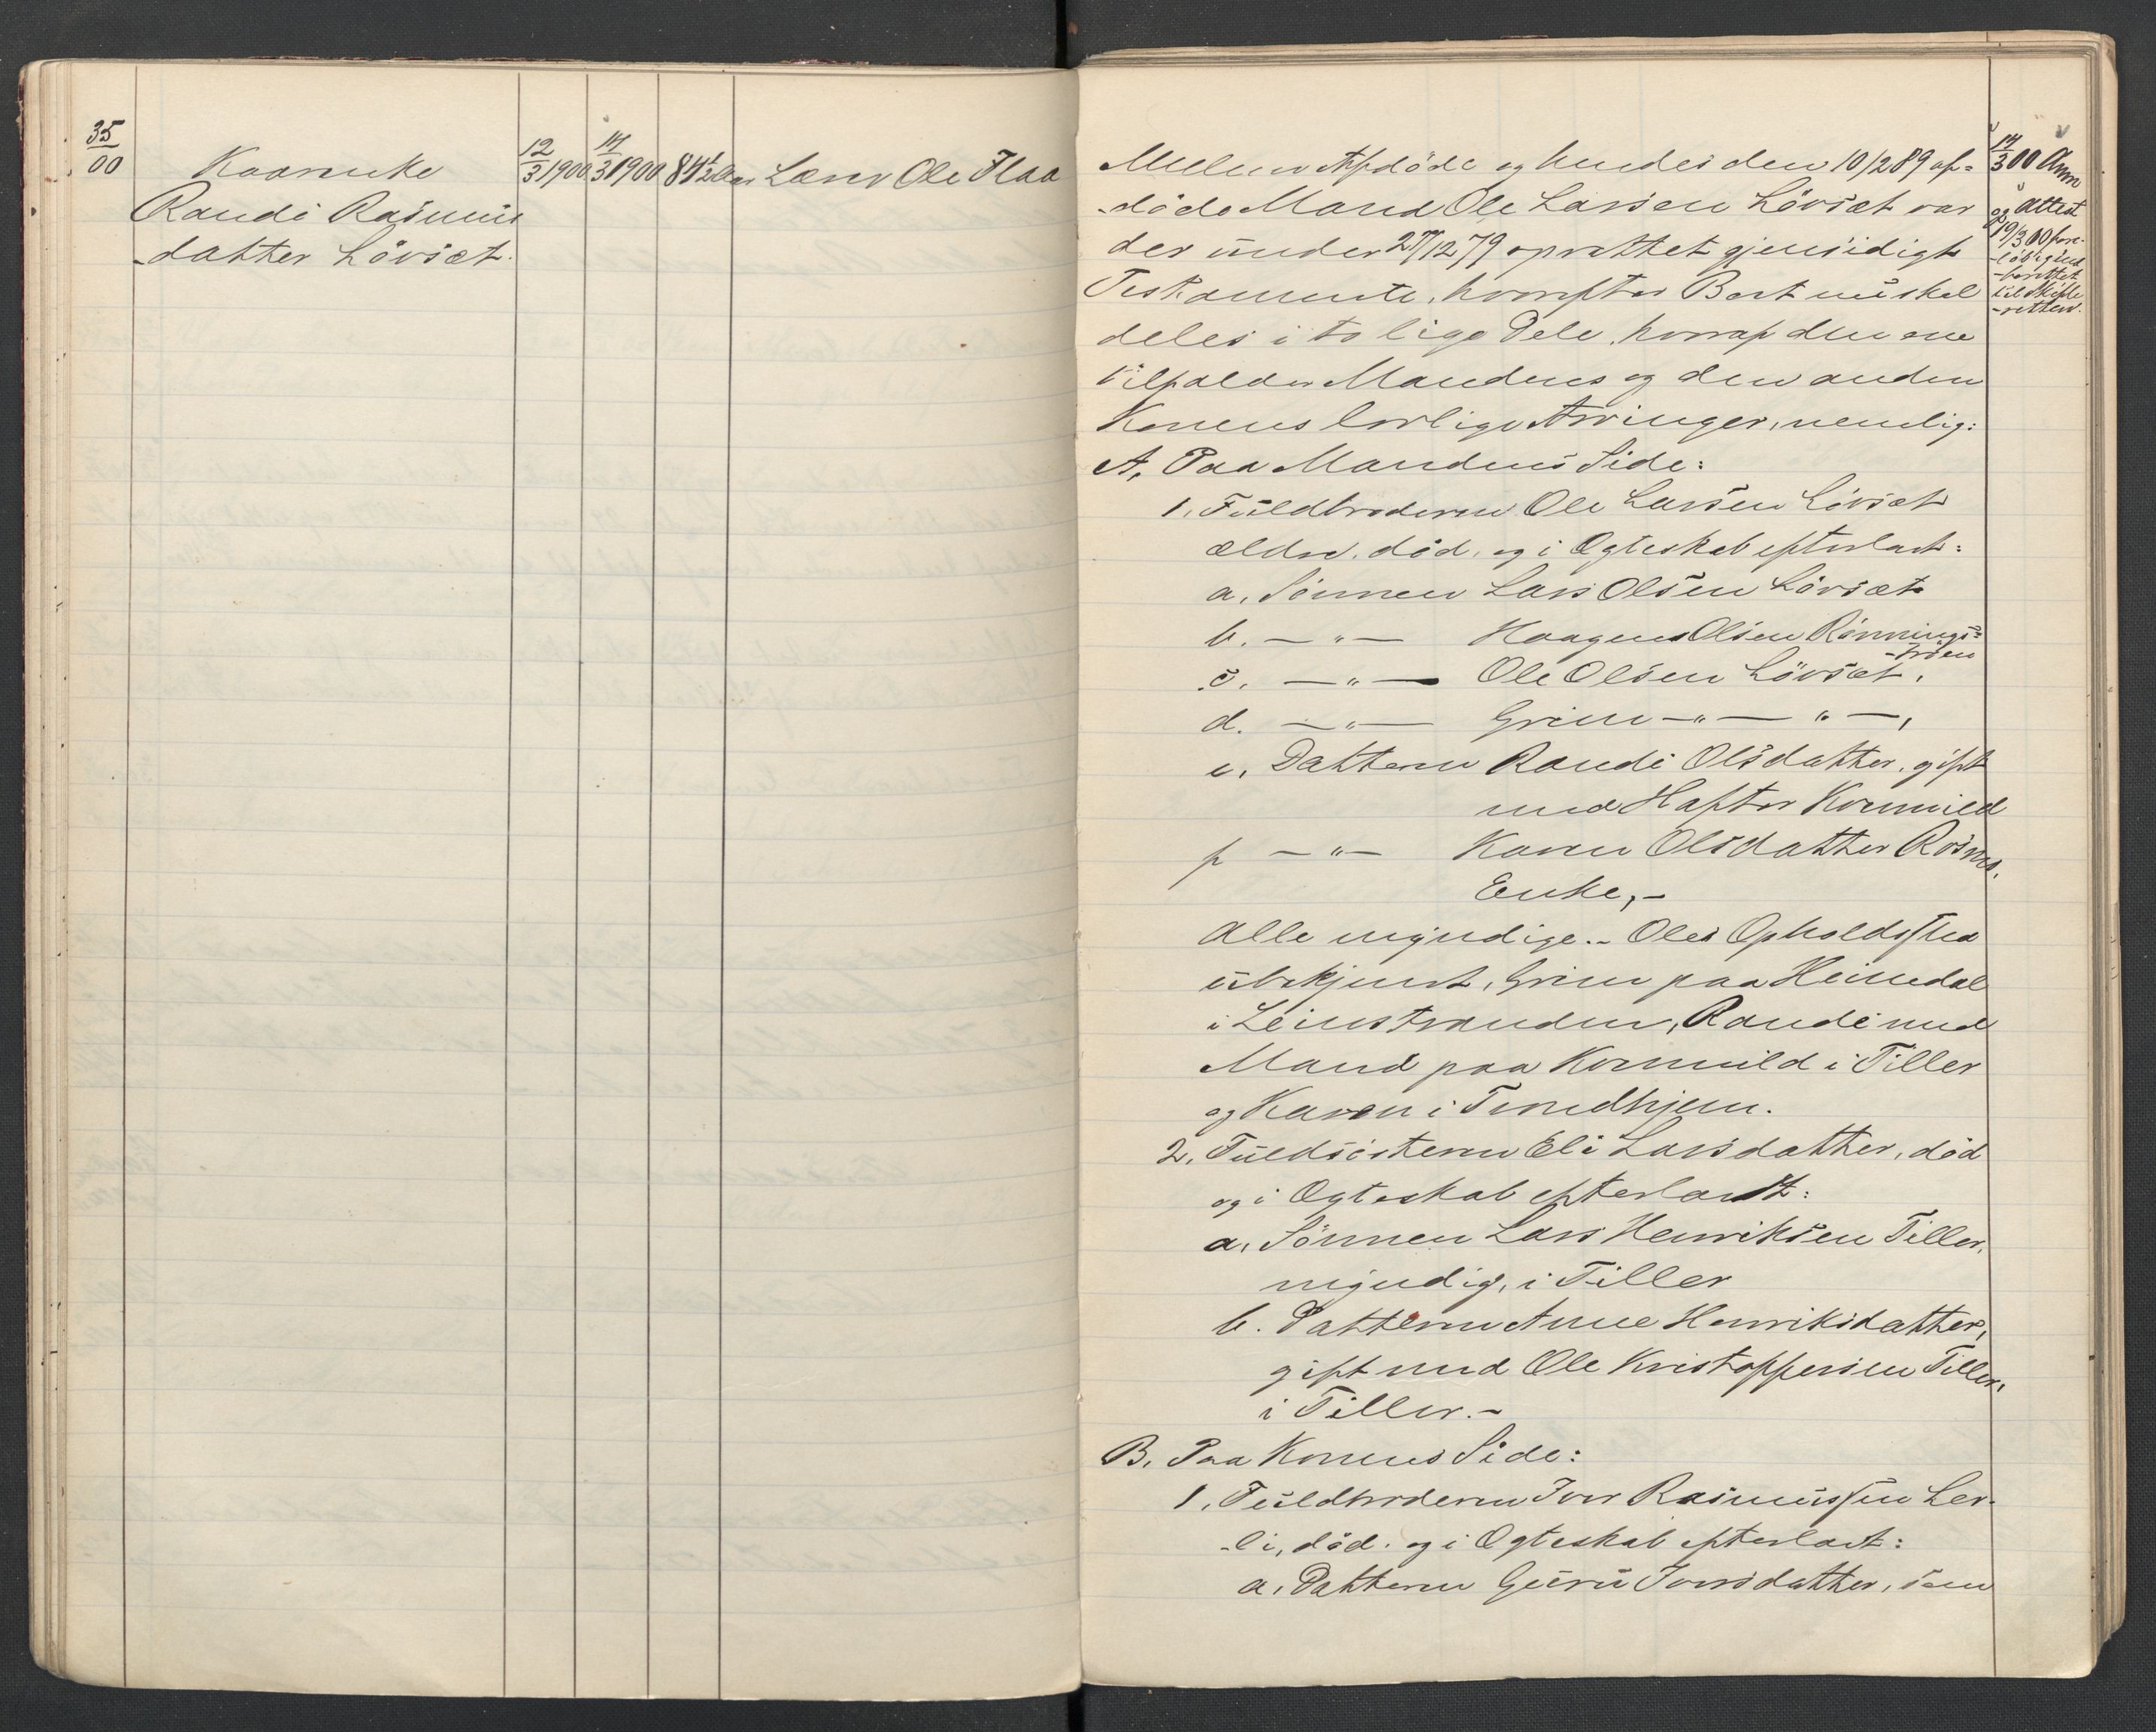 35/00
Kaarenke
Randi Rasmus
-datter Lövset.
12/3 1900
14/3 1900
84½ Aar
Læns. Ole Flaa
Mellem Afdöde og hendes den 10/2 89 af-
-döde Mand Ole Larsen Lövset var
der under 27/12 79 oprettet gjensidigt
Testamente, hvorefter Boet nu skal
deles i to lige Dele, hvoraf den ene
tilfalder Mandens og den anden
Konens lovlige Arvinger, nemlig:
A, Paa Mandens Side:
1, Fuldbroderen Ole Larsen Lövset
ældre, död, og i Ægteskab efterladt:
a, Sönnen Lars Olsen Lövset
b. — " — Haagen Olsen Rönnings-
-tröen
c. — " — Ole Olsen Lövset,
d. — " — Grim — " — " —,
e, Datteren Randi Olsdatter, gift
med Haftor Kornmild
f — " — Karen Olsdatter Rösmo,
Enke, -
Alle myndige. - Oles Opholdssted
ubekjendt, Grim paa Heimdal
i Leinstranden, Randi med
Mand paa Kornmild i Tiller
og Karen i Trondhjem.
2, Fuldsösteren Eli Larsdatter, död
og i Ægteskab efterladt:
a, Sönnen Lars Henriksen Tiller,
myndig, i Tiller
b. Datteren Anne Henriksdatter,
gift med Ole Kristoffersen Tiller,
i Tiller. -
B, Paa Konens Side:
1, Fuldbroderen Iver Rasmussen Ler-
-li, död. og i Ægteskab efterladt:
a, Datteren Guru Iversdatter, som
14/3 00 Anm
og Attest
19/3 00 fore-
-löbig ind
-berettet
til Skifte
-retten.